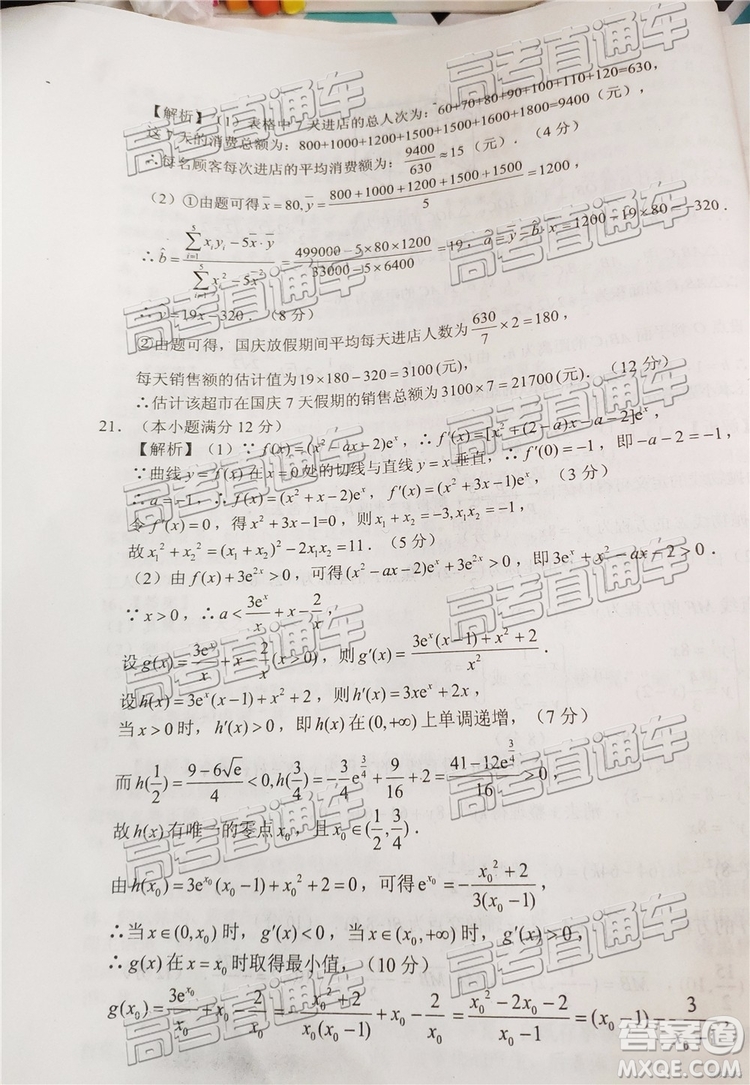 【解析】(1)表格中7天进店的总人次为:60+70+80+90+100+110+120=630,
这7天的消费总额为:800+1000+1200+1500+1500+1600+1800=9400(元),
∴每名顾客每次进店的平均消费额为:9400/630≈15(元).(4分)
(2)①由题可得x̄=80,ȳ=(800+1000+1200+1500+1500)/5=1200,
∴b̂=(∑_{i=1}^{5}x_i y_i-5x̄·ȳ)/(∑_{i=1}^{5}x_i²-5x̄²)=(499000-5×80×1200)/(33000-5×6400)=19,â=ȳ-b̂x̄=1200-19×80=-320.
∴y=19x-320.(8分)
②由题可得,国庆放假期间平均每天进店人数为630/7×2=180,
每天销售额的估计值为19×180-320=3100(元),
∴估计该超市在国庆7天假期的销售总额为3100×7=21700(元).(12分)
21.(本小题满分12分)
【解析】(1)∵f(x)=(x²-ax-2)eˣ,∴f′(x)=[x²+(2-a)x-a-2]eˣ,
∵曲线y=f(x)在x=0处的切线与直线y=x垂直,∴f′(0)=-1,即-a-2=-1,
∴a=-1,∴f(x)=(x²+x-2)eˣ,f′(x)=(x²+3x-1)eˣ,(3分)
令f′(x)=0,得x²+3x-1=0,则x₁+x₂=-3,x₁x₂=-1,
故x₁²+x₂²=(x₁+x₂)²-2x₁x₂=11.(5分)
(2)由f(x)+3e²ˣ>0,可得(x²-ax-2)eˣ+3e²ˣ>0,即3eˣ+x²-ax-2>0.
∵x>0,∴a<3eˣ/x+x-2/x,
设g(x)=3eˣ/x+x-2/x(x>0),则g′(x)=(3eˣ(x-1)+x²+2)/x².
设h(x)=3eˣ(x-1)+x²+2,则h′(x)=3xeˣ+2x,
当x>0时,h′(x)>0,即h(x)在(0,+∞)上单调递增,(7分)
而h(1/2)=(9-6√e)/4<0,h(3/4)=-3/4e^{3/4}+9/16+2=(41-12e^{3/4})/16>0,
故h(x)有唯一的零点x₀,且x₀∈(1/2,3/4).
由h(x₀)=3e^{x₀}(x₀-1)+x₀²+2=0,可得e^{x₀}=-(x₀²+2)/(3(x₀-1)),
∴当x∈(0,x₀)时,g′(x)<0,当x∈(x₀,+∞)时,g′(x)>0,
∴g(x)在x=x₀时取得最小值,(10分)
g(x₀)=3e^{x₀}/x₀+x₀-2/x₀=-(x₀²+2)/(x₀(x₀-1))+x₀-2/x₀=(x₀²-2x₀-2)/(x₀-1)=(x₀-1)-3/
高考直通车
高考直通车
高考直通车
高考直通车
高考直通车
高考直通车
高考直通车
高考直通车
高考直通车
高考直通车
高考直通车
高考直通车
答案圈
MXQE.COM